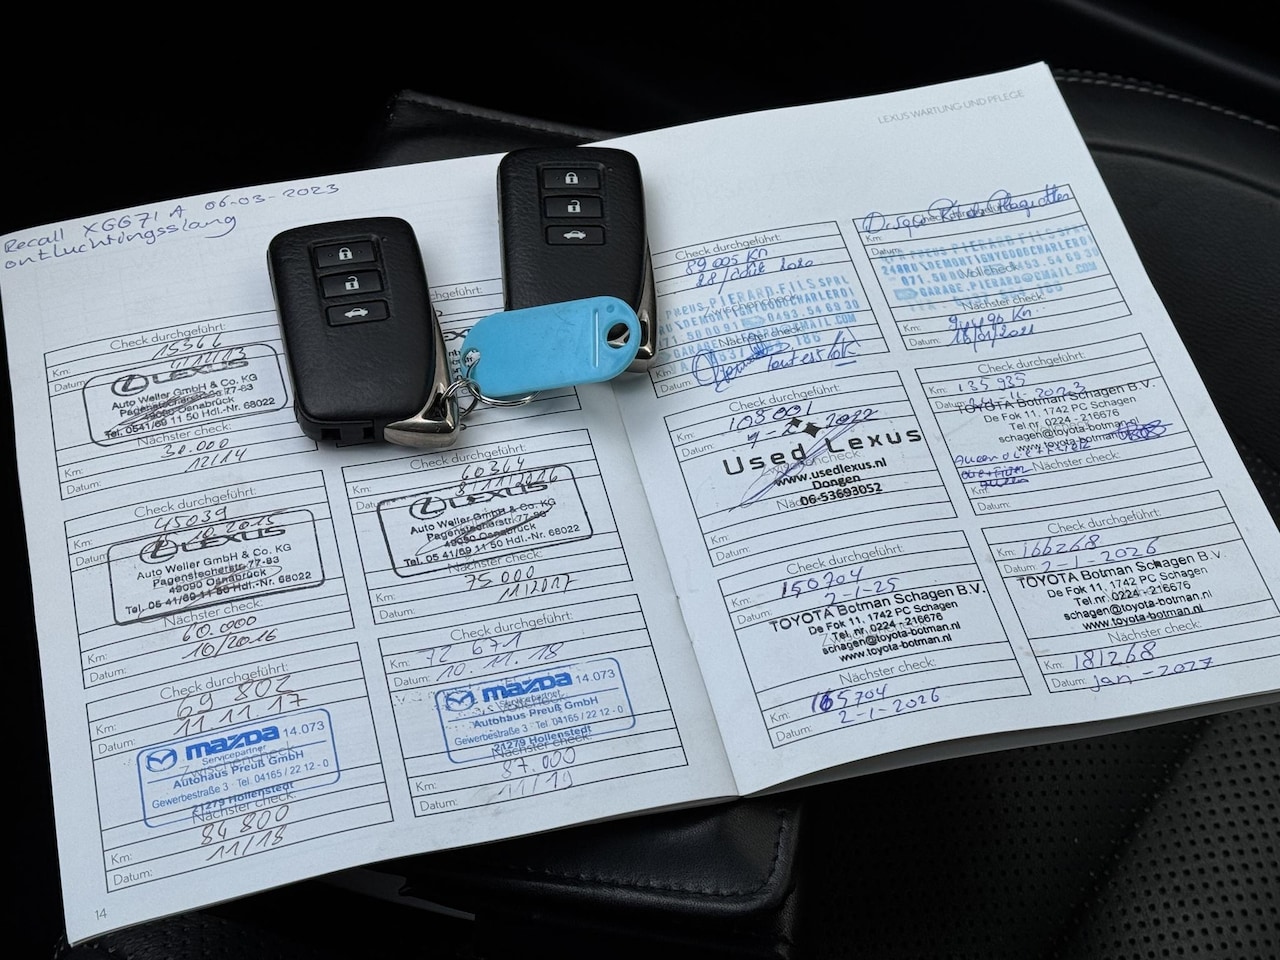 LEXUS WARTUNG UND PFLEGE
Recall XGG71A 06-03-2023
ontluchtingsslang
Check durchgeführt:
Km: 15364
Datum:
LEXUS
Auto Weller GmbH & Co. KG
Pagenstecherstraße 77-83
49090 Osnabrück
Tel. 0541/69 11 50 Hdl.-Nr. 68022
Nächster check:
Km: 30.000
Datum: 12/14
Check durchgeführt:
Km: 45039
Datum: 10.2015
LEXUS
Auto Weller GmbH & Co. KG
Pagenstecherstr. 77-83
49090 Osnabrück
Tel. 05 41/69 11 50 Hdl.-Nr. 68022
Nächster check:
Km: 60.000
Datum: 10/2016
Check durchgeführt:
Km: 69 802
Datum: 11.11.17
mazda 14.073
Servicepartner
Autohaus Preuß GmbH
Gewerbestraße 3 · Tel 04165 / 22 12 - 0
21279 Hollenstedt
Nächster check:
Km: 84 800
Datum: 11/18
14
geführt:
Check durchgeführt:
Km: 60364
Datum: 8.11.2016
LEXUS
Auto Weller GmbH & Co. KG
Pagenstecherstr. 77-83
49090 Osnabrück
Tel. 05 41/69 11 50 Hdl.-Nr. 68022
Nächster check:
Km: 75000
Datum: 11/2017
Check durchgeführt:
Km: 72 671
Datum: 10.11.18
mazda 14.073
Servicepartner
Autohaus Preuß GmbH
Gewerbestraße 3 · Tel 04165 / 22 12 - 0
21279 Hollenstedt
Nächster check:
Km: 87.000
Datum: 11/19
Check durchgeführt:
89005 Km
PIERARD.FILS SPRL
GARAGE
Nächster check:
Check durchgeführt:
Km: 108001
Datum: 2022
Used Lexus
www.usedlexus.nl
Dongen
06-53693052
Km:
Datum:
Check durchgeführt:
Km: 150704
Datum: 2-1-25
TOYOTA Botman Schagen B.V.
De Fok 11, 1742 PC Schagen
Tel. nr. 0224 - 216676
schagen@toyota-botman.nl
www.toyota-botman.nl
Nächster check:
Km: 165704
Datum: 2-1-2026
Km:
Datum:
PIERARD.FILS SPRL
GARAGE.PIERARD@GMAIL.COM
Nächster check:
Km:
Datum:
Check durchgeführt:
Km: 135935
Datum:
TOYOTA Botman Schagen B.V.
De Fok 11, 1742 PC Schagen
Tel. nr. 0224 - 216676
schagen@toyota-botman.nl
www.toyota-botman.nl
Nächster check:
Km:
Datum:
Check durchgeführt:
Km: 166268
Datum: 2-1-2026
TOYOTA Botman Schagen B.V.
De Fok 11, 1742 PC Schagen
Tel. nr. 0224 - 216676
schagen@toyota-botman.nl
www.toyota-botman.nl
Nächster check:
Km: 181268
Datum: jan - 2027